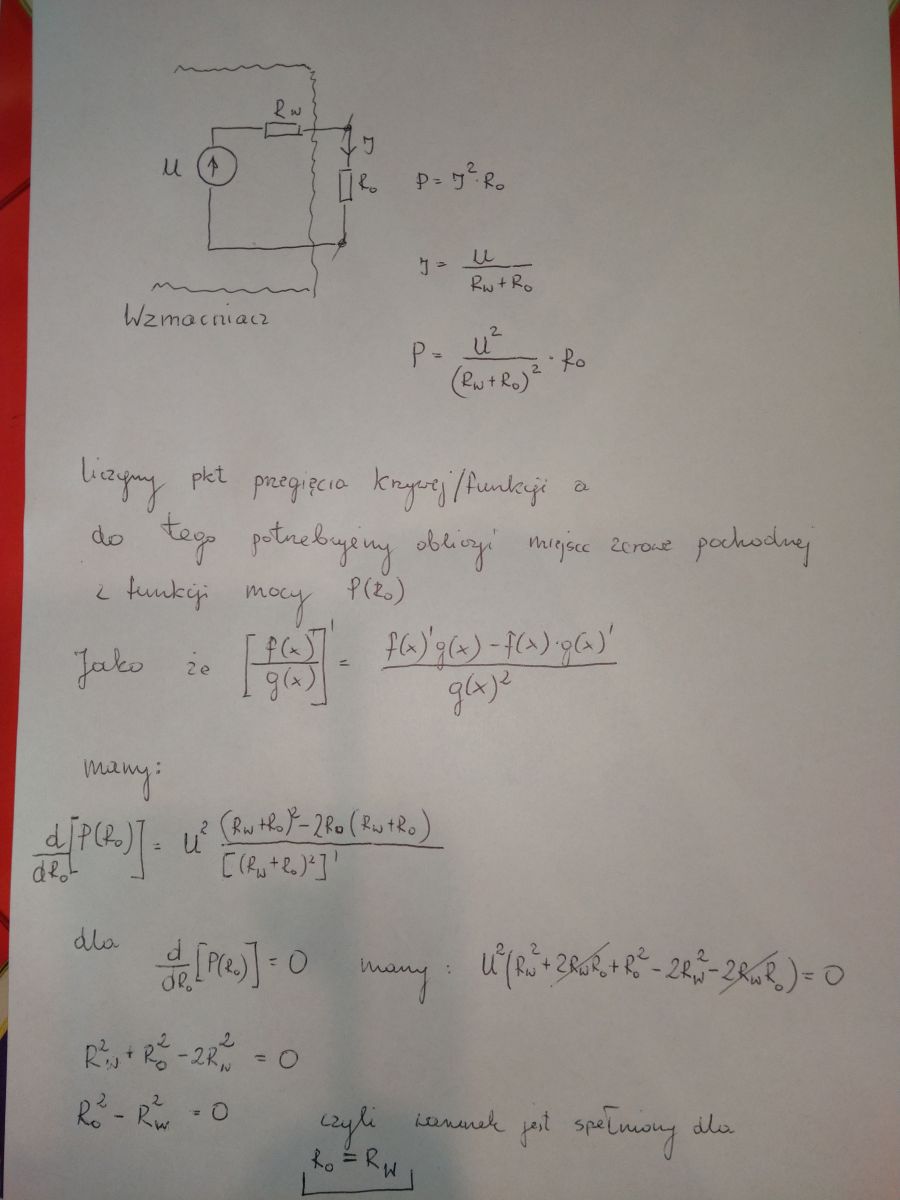 Rw
U
J
Ro
P = J²·Ro
J = U / (Rw + Ro)
Wzmacniacz
P = U² / (Rw + Ro)² · Ro
liczymy pkt przegięcia krzywej/funkcji a
do tego potrzebujemy obliczyć miejsce zerowe pochodnej
z funkcji mocy P(Ro)
Jako że [f(x) / g(x)]' = (f(x)'g(x) - f(x)·g(x)') / g(x)²
mamy:
d/dRo [P(Ro)] = U² ((Rw + Ro)² - 2Ro(Rw + Ro)) / [(Rw + Ro)²]'
dla d/dRo [P(Ro)] = 0 mamy: U²(Rw² + 2RwRo + Ro² - 2Rw² - 2RwRo) = 0
Rw² + Ro² - 2Rw² = 0
Ro² - Rw² = 0
czyli warunek jest spełniony dla
Ro = Rw